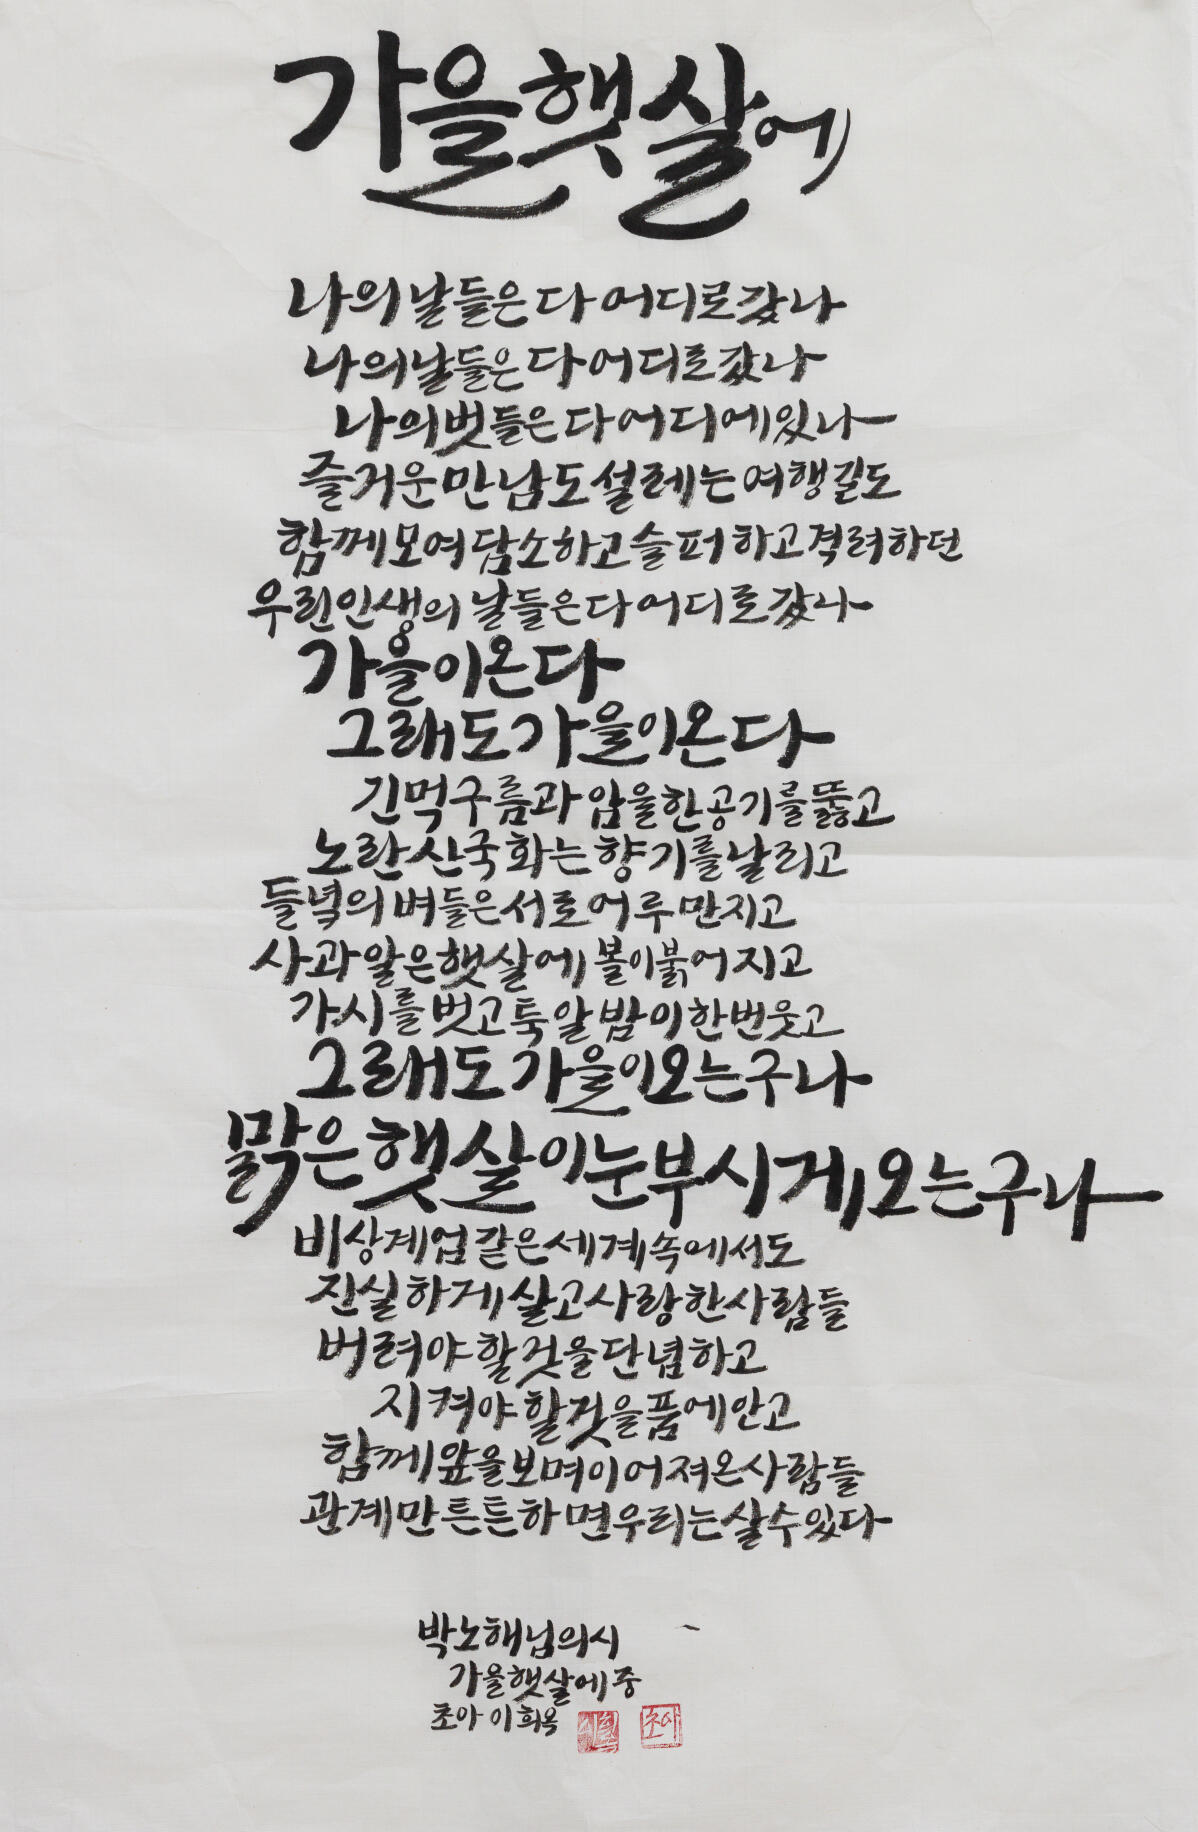 가을 햇살에
나의 날들은 다 어디로 갔나
나의 날들은 다 어디로 갔나
나의 벗들은 다 어디에 있나
즐거운 만남도 설레는 여행길도
함께 모여 담소하고 슬퍼하고 격려하던
우린 인생의 날들은 다 어디로 갔나
가을이 온다
그래도 가을이 온다
긴 먹구름과 암울한 공기를 뚫고
노란 산국화는 향기를 날리고
들녘의 벼들은 서로 어루만지고
사과알은 햇살에 볼이 붉어지고
가시를 벗고 툭 알밤이 한번 웃고
그래도 가을이 오는구나
맑은 햇살이 눈부시게 오는구나
비상계엄 같은 세계 속에서도
진실하게 살고 사랑한 사람들
버려야 할 것을 단념하고
지켜야 할 것을 품에 안고
함께 앞을 보며 이어져온 사람들
관계만 튼튼하면 우리는 살 수 있다
박노해님의 시
가을 햇살에 중
초아 이희옥
초아